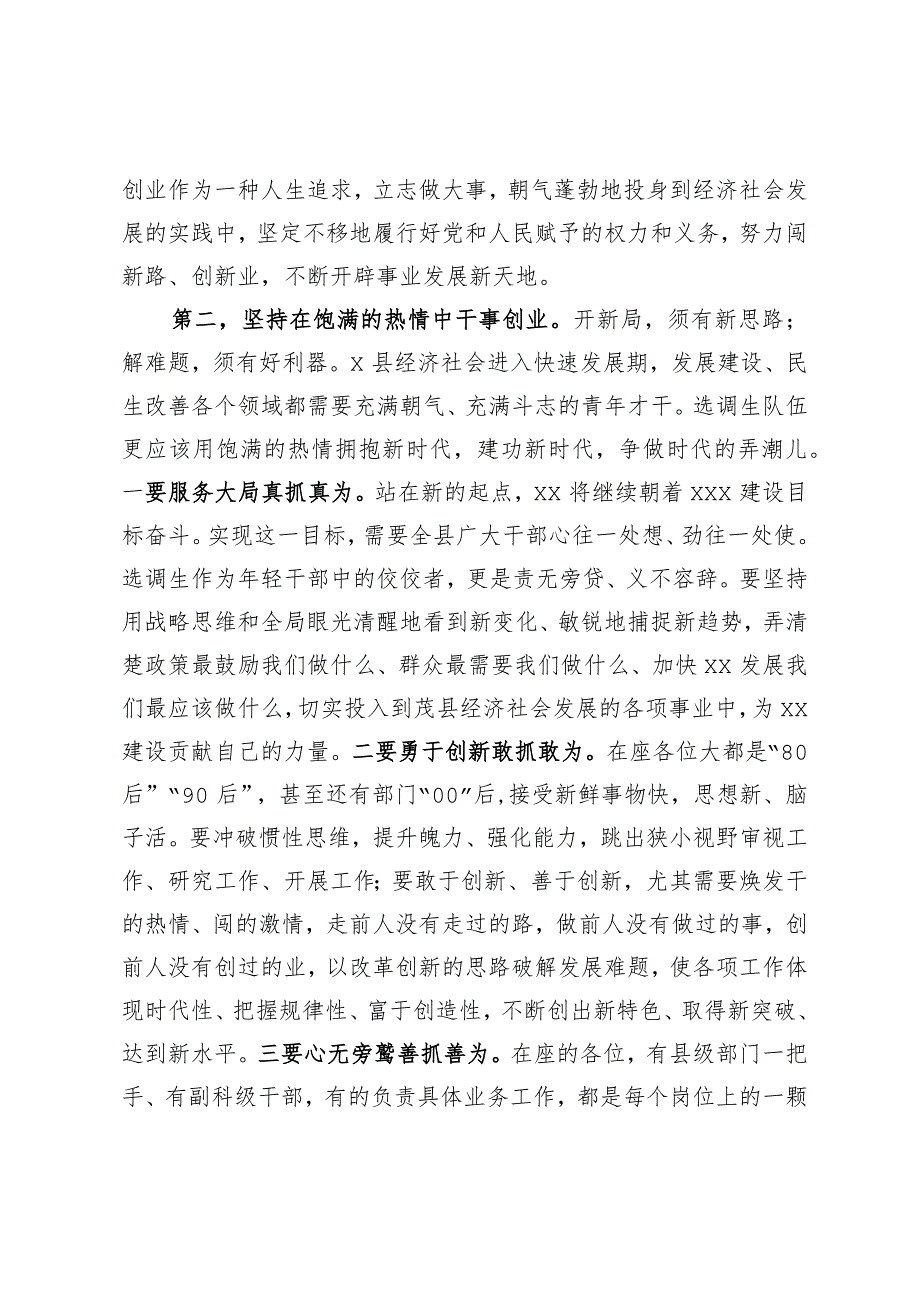 创业作为一种人生追求，立志做大事，朝气蓬勃地投身到经济社会发
展的实践中，坚定不移地履行好党和人民赋予的权力和义务，努力闯
新路、创新业，不断开辟事业发展新天地。
第二，坚持在饱满的热情中干事创业。开新局，须有新思路；
解难题，须有好利器。X 县经济社会进入快速发展期，发展建设、民
生改善各个领域都需要充满朝气、充满斗志的青年才干。选调生队伍
更应该用饱满的热情拥抱新时代，建功新时代，争做时代的弄潮儿。
一要服务大局真抓真为。站在新的起点，XX 将继续朝着 XXX 建设目
标奋斗。实现这一目标，需要全县广大干部心往一处想、劲往一处使。
选调生作为年轻干部中的佼佼者，更是责无旁贷、义不容辞。要坚持
用战略思维和全局眼光清醒地看到新变化、敏锐地捕捉新趋势，弄清
楚政策最鼓励我们做什么、群众最需要我们做什么、加快 XX 发展我
们最应该做什么，切实投入到茂县经济社会发展的各项事业中，为 XX
建设贡献自己的力量。二要勇于创新敢抓敢为。在座各位大都是“80
后”“90 后”，甚至还有部门“00”后,接受新鲜事物快，思想新、脑
子活。要冲破惯性思维，提升魄力、强化能力，跳出狭小视野审视工
作、研究工作、开展工作；要敢于创新、善于创新，尤其需要焕发干
的热情、闯的激情，走前人没有走过的路，做前人没有做过的事，创
前人没有创过的业，以改革创新的思路破解发展难题，使各项工作体
现时代性、把握规律性、富于创造性，不断创出新特色、取得新突破、
达到新水平。三要心无旁鹜善抓善为。在座的各位，有县级部门一把
手、有副科级干部，有的负责具体业务工作，都是每个岗位上的一颗